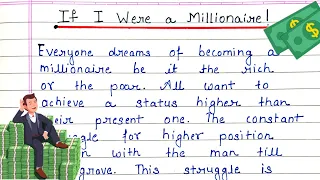 If I Were a Millionaire!
Everyone dreams of becoming a
millionaire be it the rich
or the poor. All want to
achieve a status higher than
their present one. The constant
for higher position
with the man till
grove. This struggle is